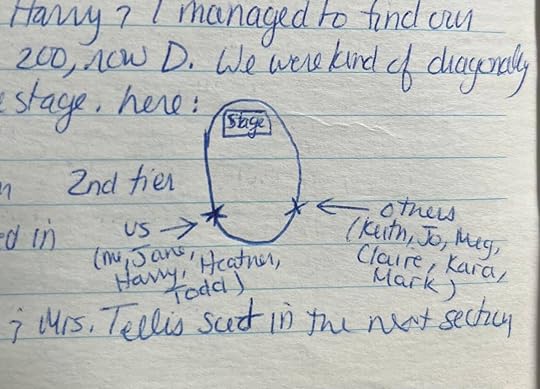 Harry ? I managed to find our
200, row D. We were kind of diagonally
e stage. here:
Stage
2nd tier
others
ed in us
(Keith, Jo, Meg,
(me, Jane,
Claire, Kara,
Harry, Heather,
Mark)
Todd)
; Mrs. Tellis sat in the next section